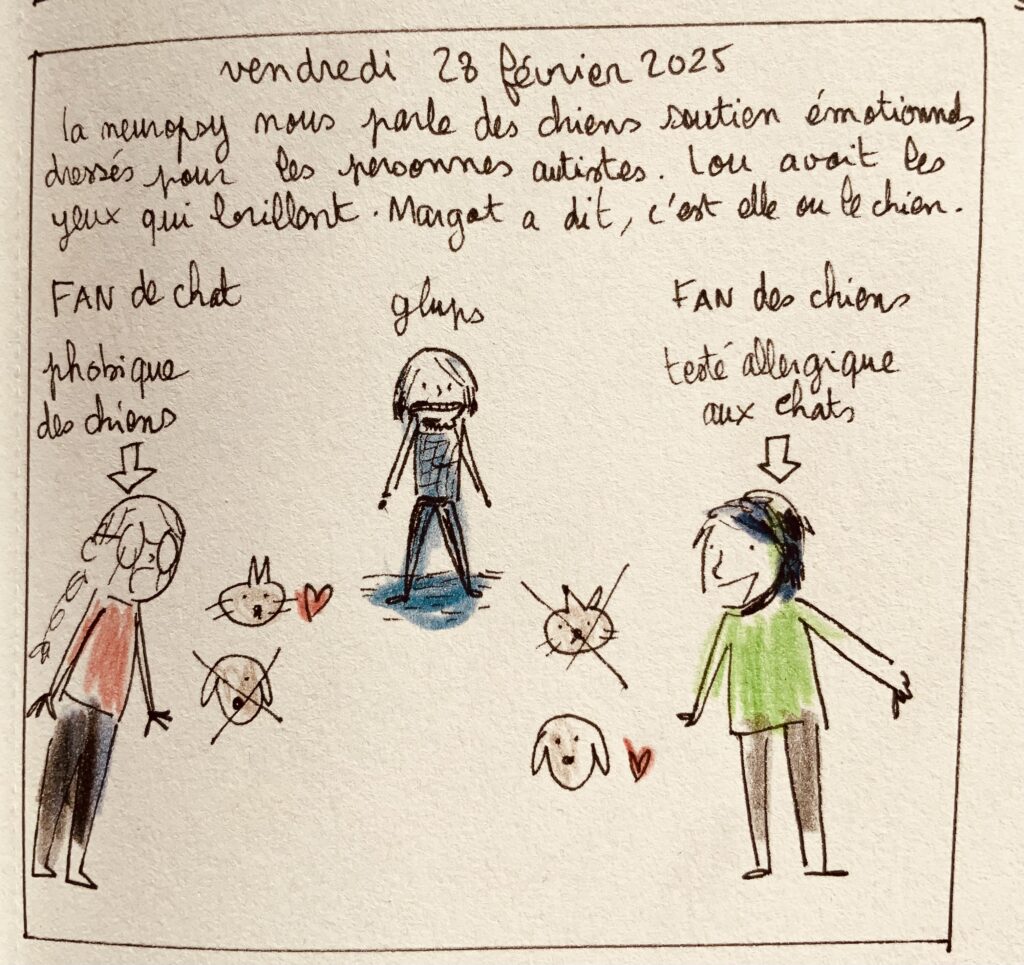 vendredi 28 février 2025
la neuropsy nous parle des chiens soutien émotionnels
dressés pour les personnes autistes. Lou avait les
yeux qui brillent. Margot a dit, c'est elle ou le chien.
FAN de chat
phobique
des chiens
glups
FAN des chiens
testé allergique
aux chats